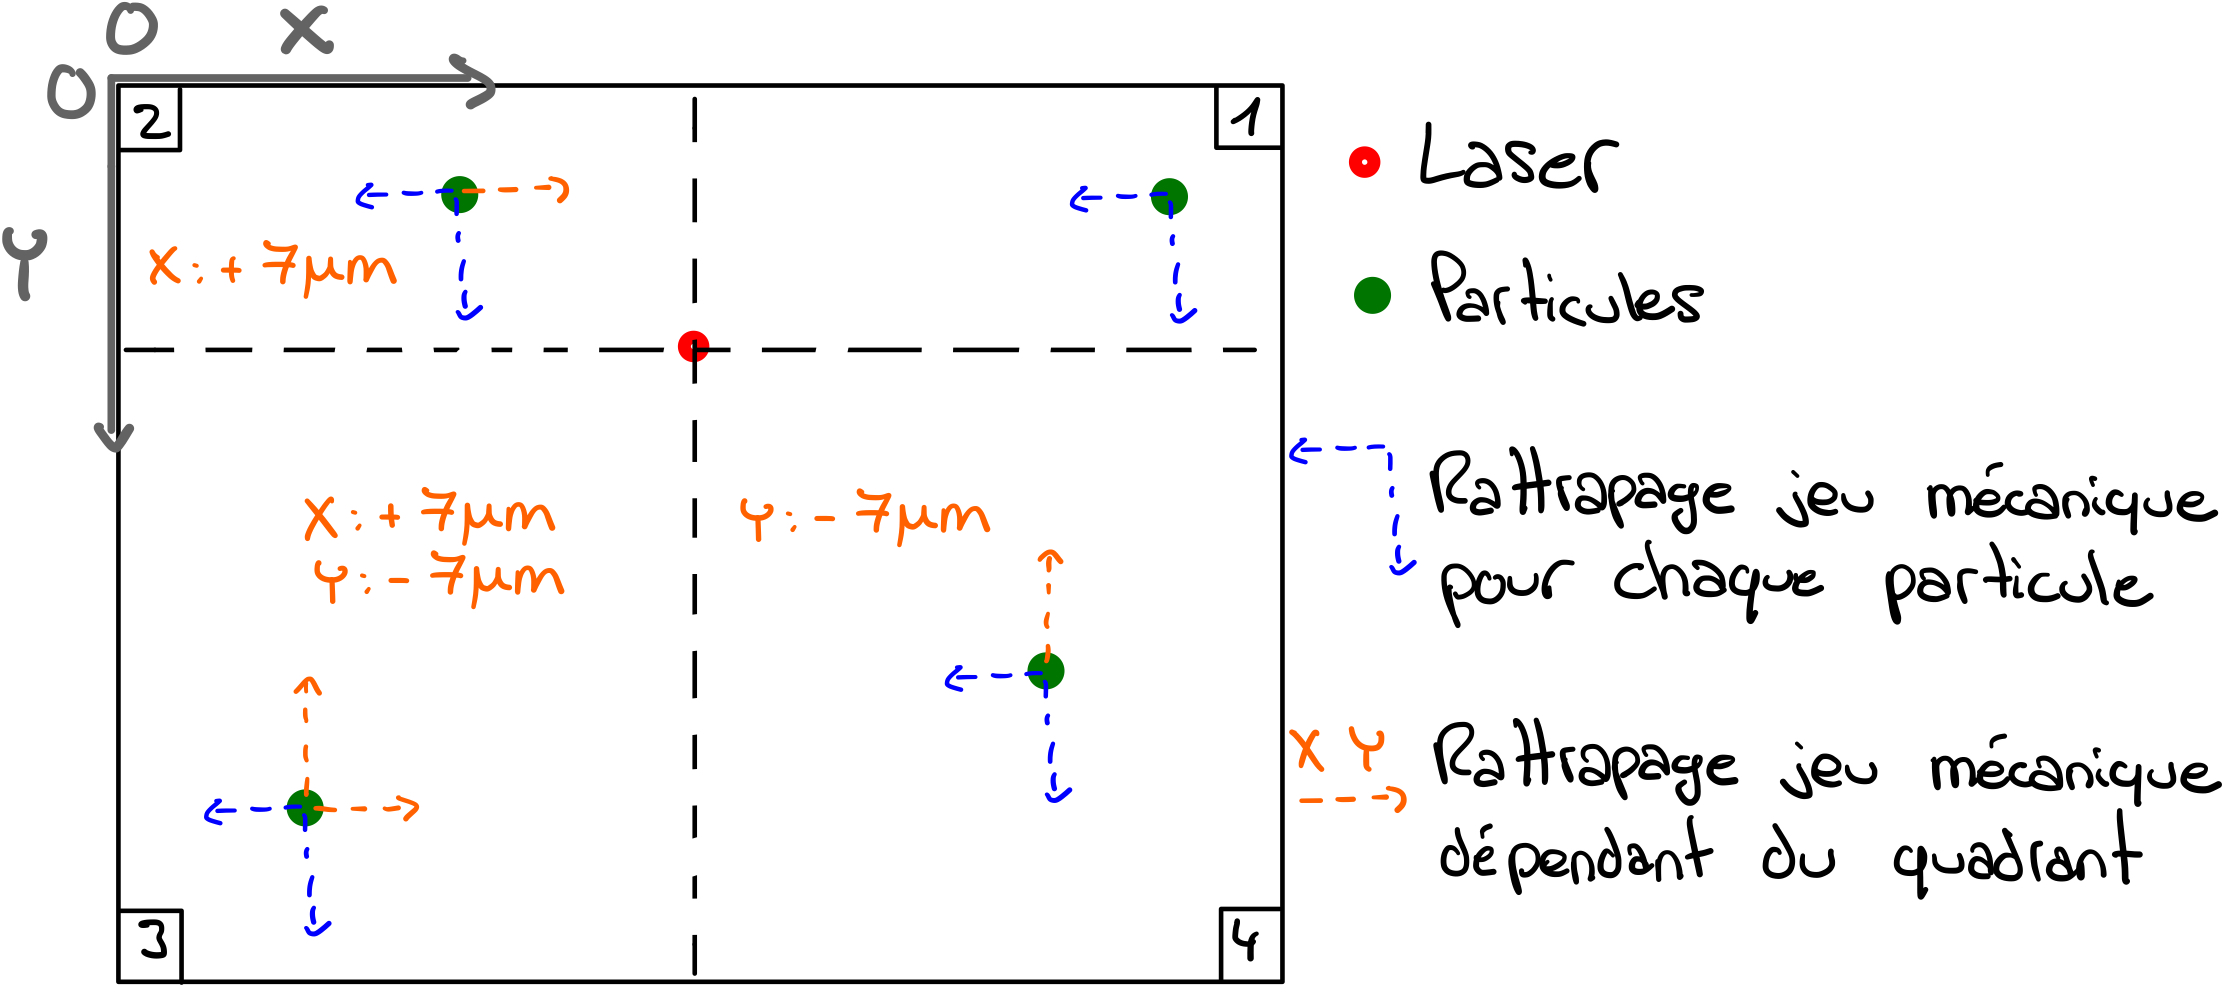 0 X
0
Y
2
1
X: + 7μm
X: + 7μm
Y: - 7μm
Y: - 7μm
3
4
Laser
Particules
Rattrapage jeu mécanique
pour chaque particule
X Y
Rattrapage jeu mécanique
dépendant du quadrant